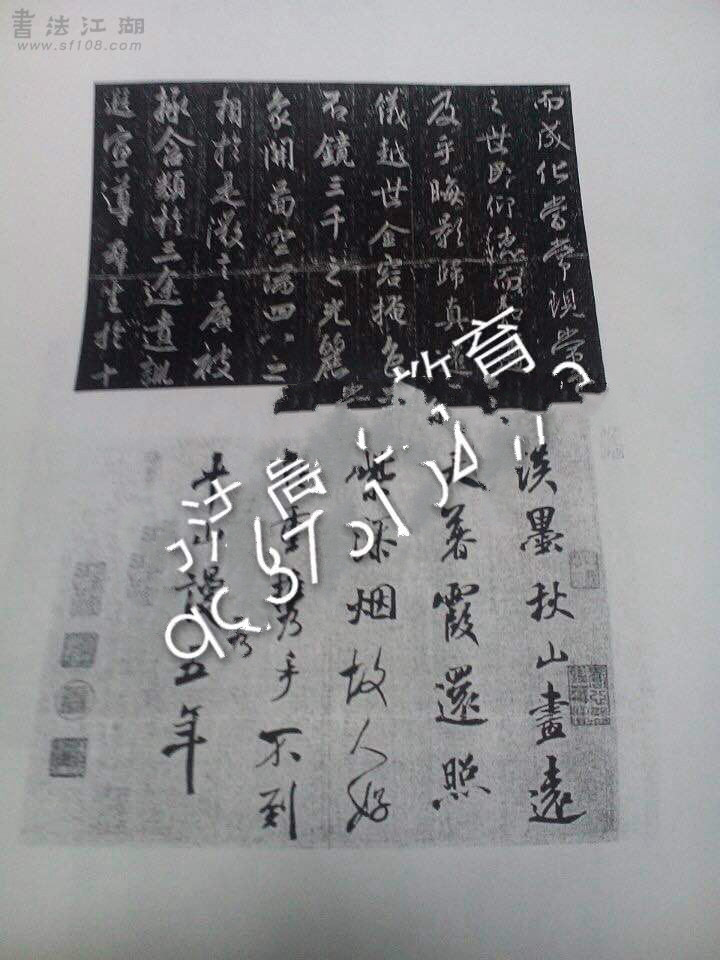 書法江湖
www.sf108.com
而成化當常現常
之世民仰德而知
及乎晦影歸真遷
儀越世金容掩色
不鏡三千之光麗
象開圖空端四八之
相於是微言廣被
拯含類於三途遺訓
遐宣導群生於十
教育
淡墨秋山畫遠
天暮霞還照
紫添烟故人好
在重攜手不到
山謾五年